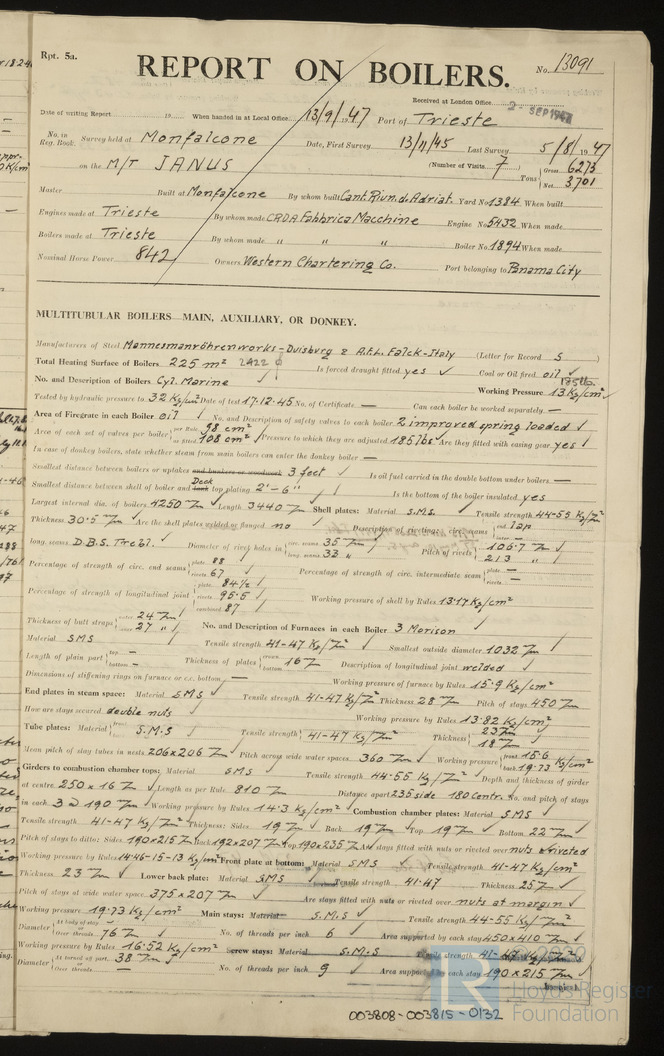 Rpt. 5a.
REPORT ON BOILERS.
No. 13091
Received at London Office 2 - SEP 1947
Date of writing Report 19 When handed in at Local Office 13/9/1947 Port of Trieste
No. in Reg. Book. Survey held at Monfalcone Date, First Survey 13/11/45 Last Survey 5/8/1947
on the M/T JANUS (Number of Visits 7) Tons Gross 6273 Net 3701
Master Built at Monfalcone By whom built Cant. Riun. d. Adriat. Yard No 1384 When built
Engines made at Trieste By whom made CRDA Fabbrica Macchine Engine No 5432 When made
Boilers made at Trieste By whom made " " " Boiler No. 1894 When made
Nominal Horse Power 842 Owners Western Chartering Co. Port belonging to Panama City
MULTITUBULAR BOILERS MAIN, AUXILIARY, OR DONKEY.
Manufacturers of Steel Mannesmanröhrenworks - Duisburg & A.F.L. Falck - Italy (Letter for Record S )
Total Heating Surface of Boilers 225 m² 2422 Is forced draught fitted yes Coal or Oil fired oil
No. and Description of Boilers Cyl. Marine Working Pressure 13 Kg/cm²
Tested by hydraulic pressure to 32 Kg/cm² Date of test 17-12-45 No. of Certificate — Can each boiler be worked separately —
Area of Firegrate in each Boiler oil No. and Description of safety valves to each boiler 2 improved spring loaded
Area of each set of valves per boiler per Rule 98 cm² as fitted 108 cm² Pressure to which they are adjusted 185 lbs Are they fitted with easing gear yes
In case of donkey boilers, state whether steam from main boilers can enter the donkey boiler —
Smallest distance between boilers or uptakes and bunkers or woodwork 3 feet Is oil fuel carried in the double bottom under boilers —
Smallest distance between shell of boiler and Deck tank top plating 2' - 6" Is the bottom of the boiler insulated yes
Largest internal dia. of boilers 4250 m/m Length 3440 m/m Shell plates: Material S.M.S. Tensile strength 44-55 Kg/m/m²
Thickness 30.5 m/m Are the shell plates welded or flanged no Description of riveting: circ. seams end lap inter. —
long. seams D.B.S. Trebl. Diameter of rivet holes in circ. seams 35 m/m long. seams 33 " Pitch of rivets 106.7 m/m 213 "
Percentage of strength of circ. end seams plate 88 rivets 67 Percentage of strength of circ. intermediate seam plate — rivets —
Percentage of strength of longitudinal joint plate 84½ rivets 95.5 combined 87 Working pressure of shell by Rules 13.17 Kg/cm²
Thickness of butt straps outer 24 m/m inner 27 " No. and Description of Furnaces in each Boiler 3 Morison
Material SMS Tensile strength 41-47 Kg/m/m² Smallest outside diameter 1032 m/m
Length of plain part top — bottom — Thickness of plates crown bottom 16 m/m Description of longitudinal joint welded
Dimensions of stiffening rings on furnace or c.c. bottom — Working pressure of furnace by Rules 15.9 Kg/cm²
End plates in steam space: Material SMS Tensile strength 41-47 Kg/m/m² Thickness 28 m/m Pitch of stays 450 m/m
How are stays secured double nuts Working pressure by Rules 13.82 Kg/cm²
Tube plates: Material front back S.M.S Tensile strength 41-47 Kg/m/m² Thickness 23 m/m 18 m/m
Mean pitch of stay tubes in nests 206x206 m/m Pitch across wide water spaces 360 m/m Working pressure front 15.6 back 19.73 Kg/cm²
Girders to combustion chamber tops: Material SMS Tensile strength 44-55 Kg/m/m² Depth and thickness of girder
at centre 250 x 16 m/m Length as per Rule 810 m/m Distance apart 235 side 180 contr. No. and pitch of stays
in each 3 a 190 m/m Working pressure by Rules 14.3 Kg/cm² Combustion chamber plates: Material S.M.S
Tensile strength 41-47 Kg/m/m² Thickness: Sides 19 m/m Back 19 m/m Top 19 m/m Bottom 22 m/m
Pitch of stays to ditto: Sides 190x215 m/m Back 192x207 m/m Top 190x235 m/m Are stays fitted with nuts or riveted over nuts & riveted
Working pressure by Rules 14.46-15-13 Kg/cm² Front plate at bottom: Material SMS Tensile strength 41-47 Kg/cm²
Thickness 23 m/m Lower back plate: Material SMS Tensile strength 41-47 Thickness 25 m/m
Pitch of stays at wide water space 375 x 207 m/m Are stays fitted with nuts or riveted over nuts at margin
Working pressure 19.73 Kg/cm² Main stays: Material S.M.S Tensile strength 44-55 Kg/m/m²
Diameter At body of stay Over threads 76 m/m No. of threads per inch 6 Area supported by each stay 450x410 m/m
Working pressure by Rules 16.52 Kg/cm² Screw stays: Material S.M.S Tensile strength 41-47 Kg/m/m²
Diameter At turned off part Over threads 38 m/m No. of threads per inch 9 Area supported by each stay 190x215 m/m
Lloyd's Register
Foundation
003808-003815-0132